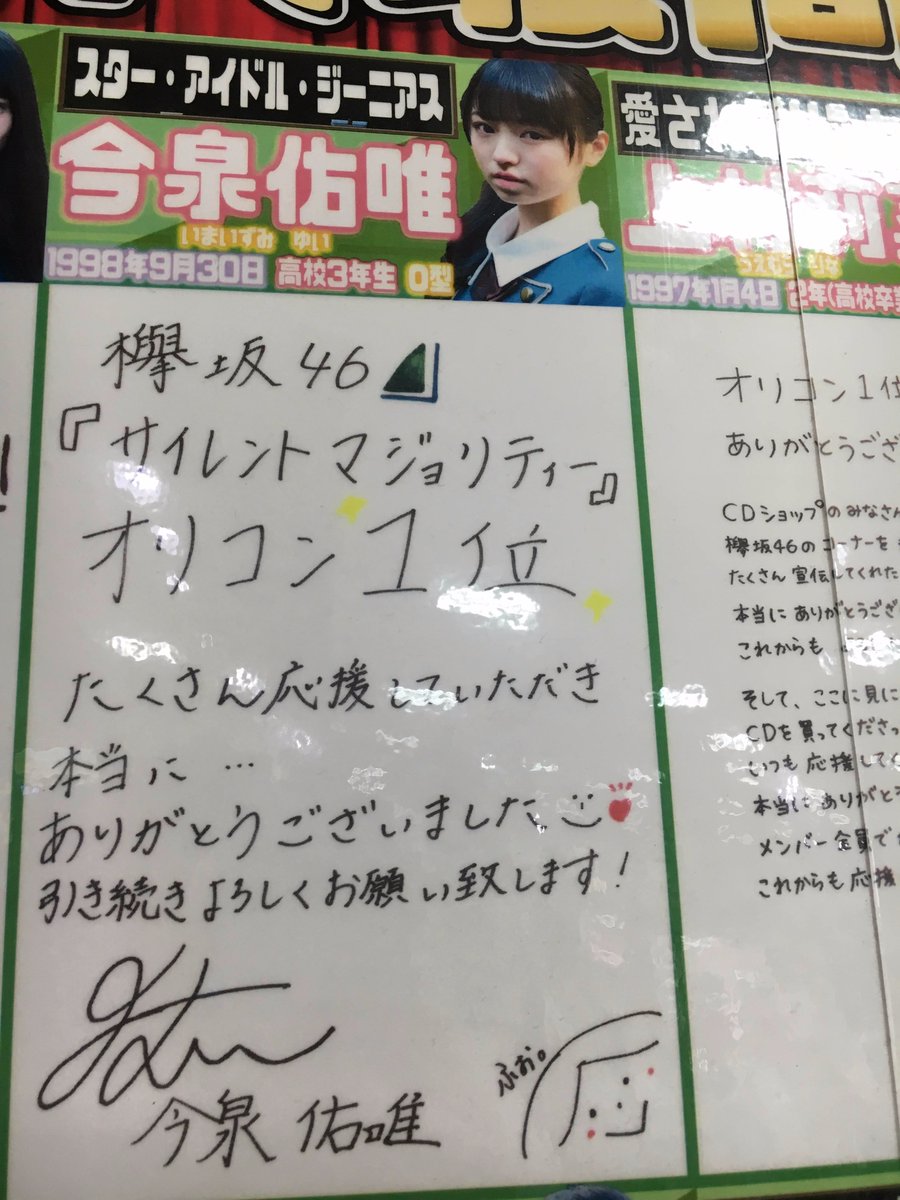 スター・アイドル・ジーニアス
今泉佑唯
いまいずみ ゆい
1998年9月30日 高校3年生 O型
欅坂46
『サイレントマジョリティー』
オリコン1位
たくさん応援していただき
本当に…
ありがとうございました
引き続きよろしくお願い致します!
今泉 佑唯
ふお。
愛さ
上村
うえむら りな
1997年1月4日 2年(高校卒業
オリコン1位
ありがとうござ
CDショップのみなさん
欅坂46のコーナーを
たくさん宣伝してくれた
本当にありがとうござ
これからも
そして、ここに見に
CDを買ってくださっ
いつも応援して
本当にありがとう
メンバー全員で
これからも応援